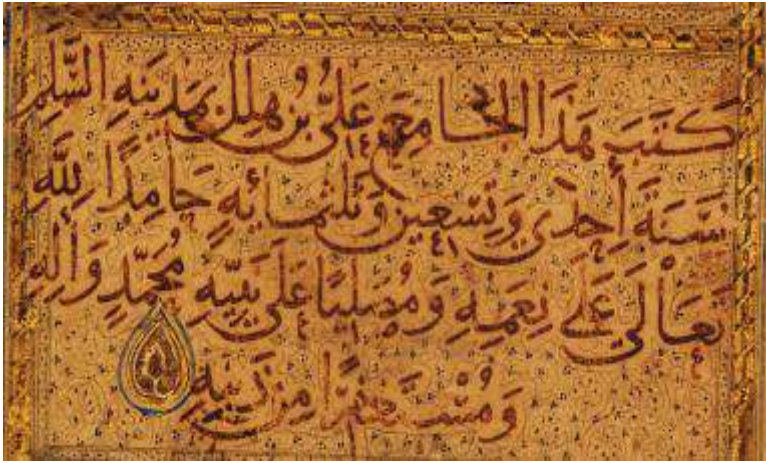 كَتَبَ هَذَا الجَامِعَ عَلِيُّ بْنُ هِلَلٍ بِمَدِينَةِ السَّلَمِ
سَنَةَ إِحْدَى وَتِسْعِينَ وَثَلَثمَائَةٍ حَامِدًا لِلَّهِ
تَعَالَى عَلَى نِعَمِهِ وَمُصَلِّيًا عَلَى نَبِيِّهِ مُحَمَّدٍ وَآلِهِ
وَمُسْتَغْفِرًا مِنْ ذَنْبِهِ